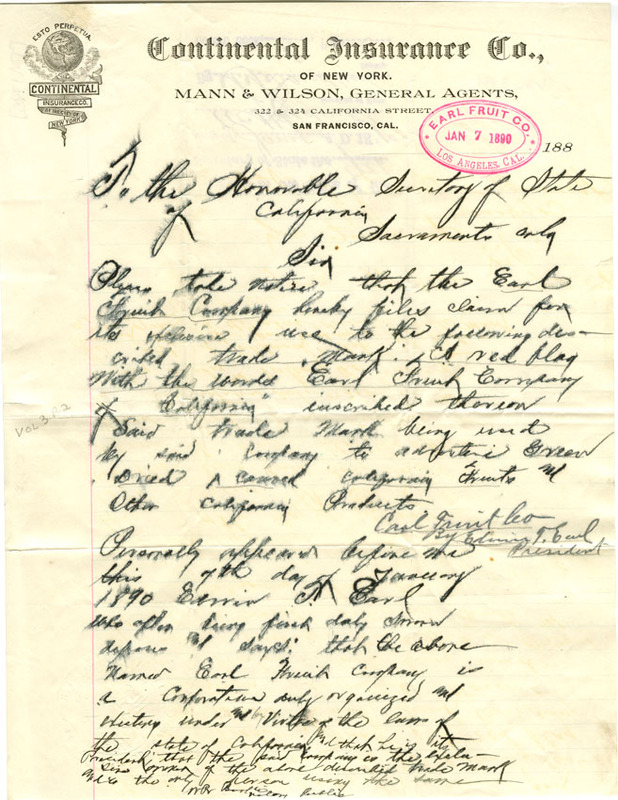 ESTO PERPETUA
CONTINENTAL
INSURANCE CO.
OF THE CITY OF
NEW YORK
Continental Insurance Co.,
OF NEW YORK.
MANN & WILSON, GENERAL AGENTS,
322 & 324 CALIFORNIA STREET
SAN FRANCISCO, CAL.
EARL FRUIT CO.
JAN 7 1890
LOS ANGELES, CAL.
188
To the Honorable Secretary of State
of California
Sacramento
Sir
Please take notice that the Earl
Fruit Company hereby files claim for
its exclusive use to the following des-
cribed trade Mark: "A red flag
With the words Earl Fruit Company
of California" inscribed thereon
Said trade Mark being used
by said Company to advertise Green
Dried & canned California Fruits and
Other California Products
Earl Fruit Co
By Edwin T. Earl
President
Vol 3 P.2
Personally appeared before me
this 7th day of January
1890 Edwin T. Earl
who after being first duly sworn
deposes & says: that the above
Named Earl Fruit Company is
a Corporation duly organized and
existing under and by Virtue of the laws of
the state of California and that he is its
President that the said Company is the exclu-
sive owner of the above described trade Mark
and is the only person using the same
Notary Public